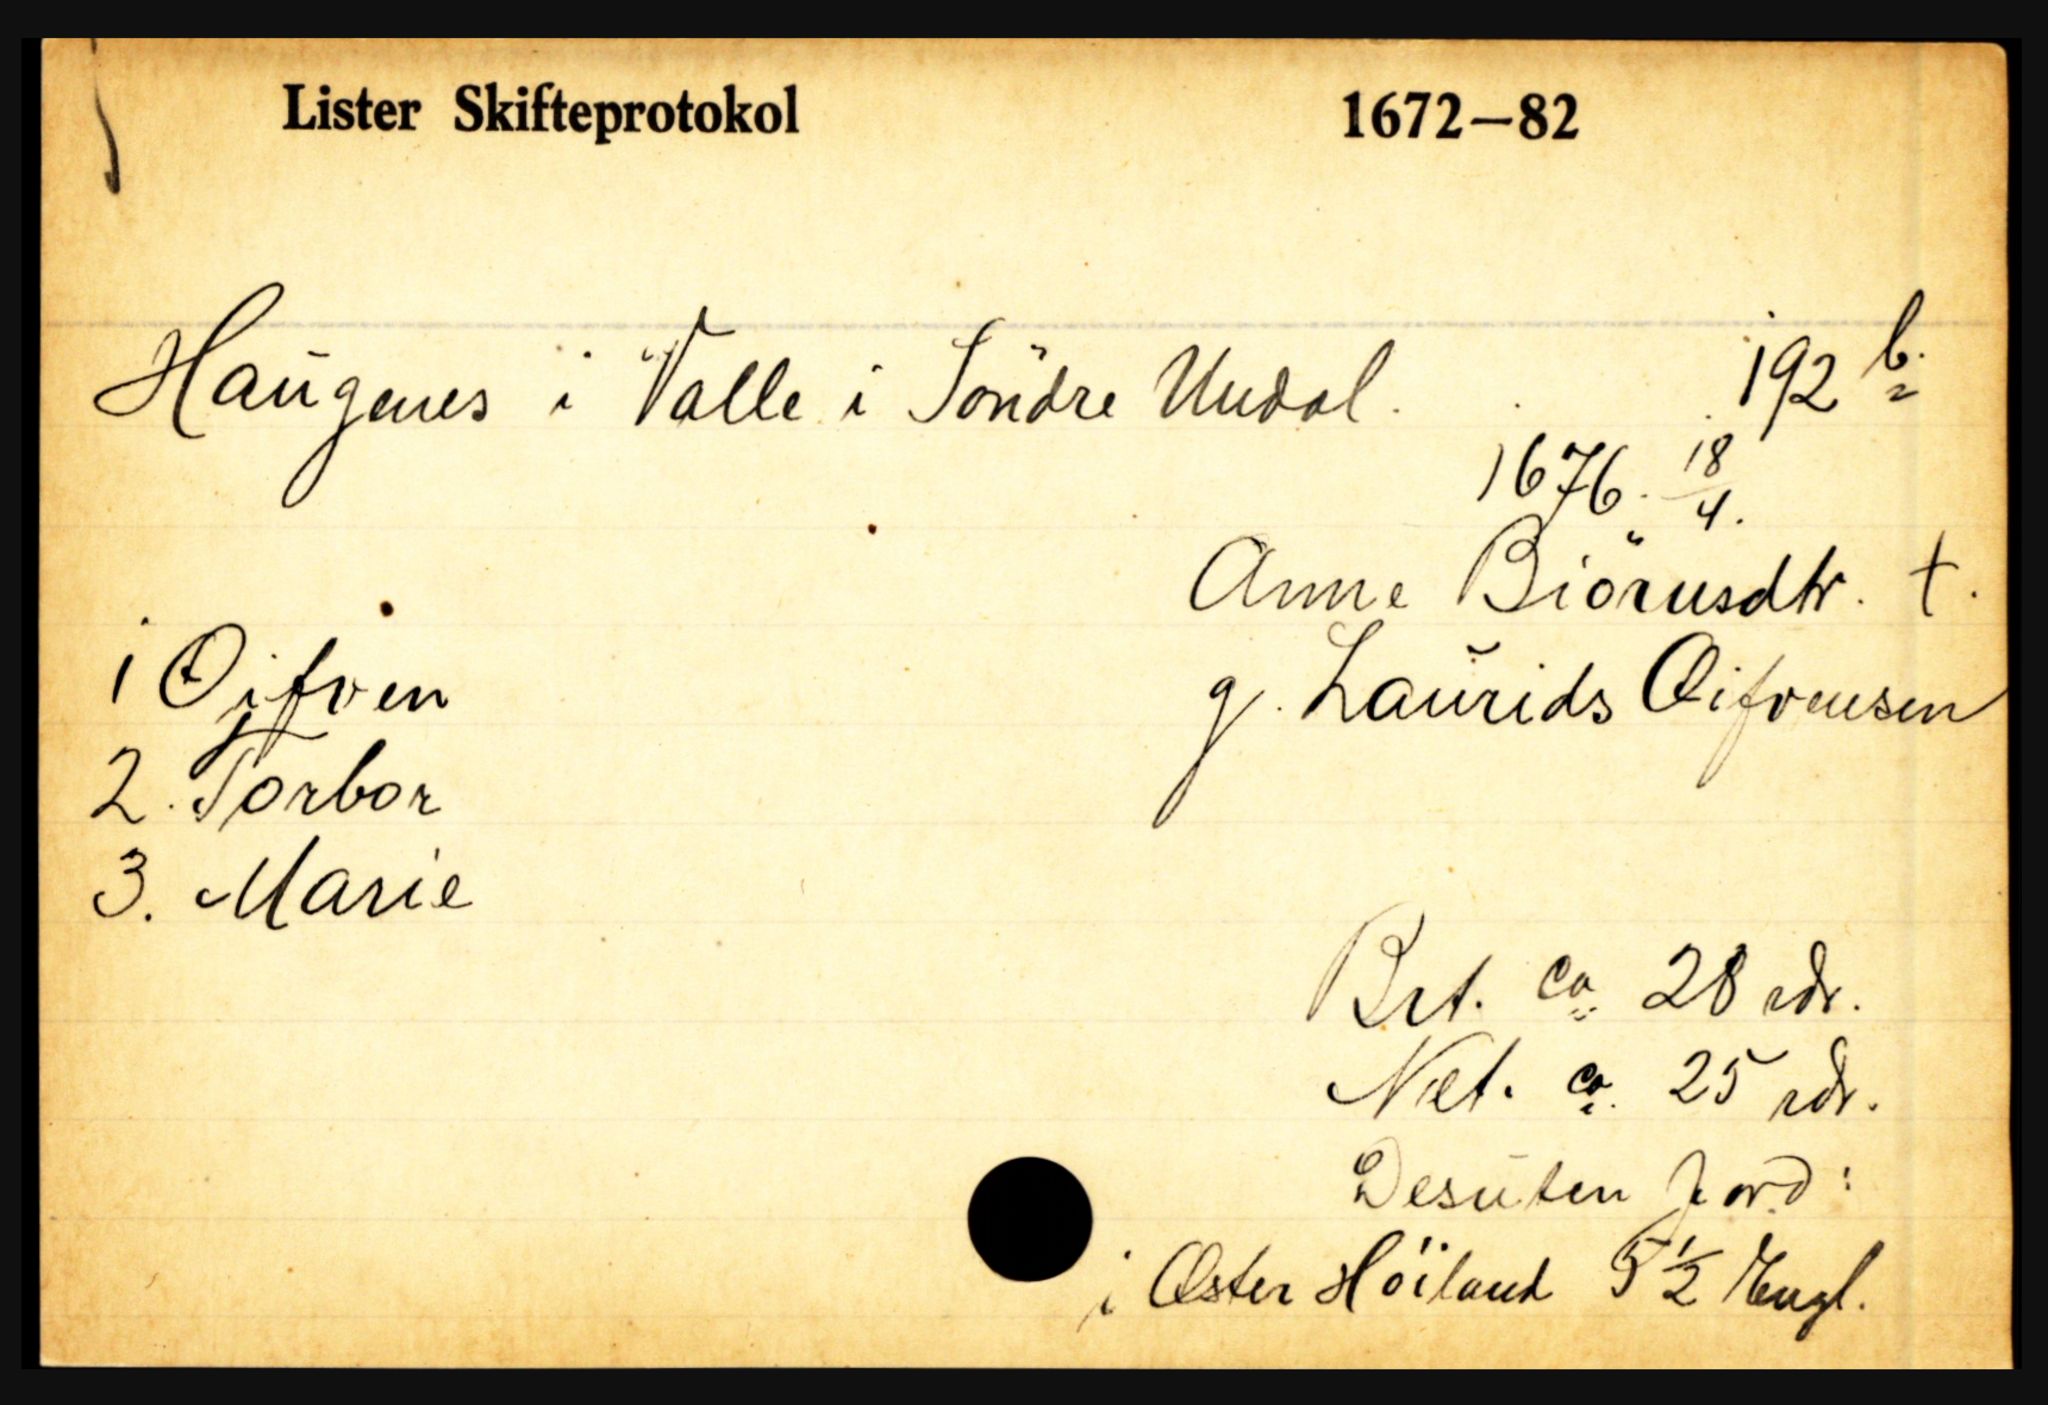 Lister Skifteprotokol 1672—82
Haugenes i Valle i Söndre Undal. 192 b.
1676. 18/4.
Anne Biörnsdtr. †.
1 Öifven g. Laurids Öifvensen
2. Torbor
3. Marie
Brt. ca 28 rdr.
Net. ca. 25 rdr.
Desuten Jord:
i Øster Höiland 5 1/2 Engl.